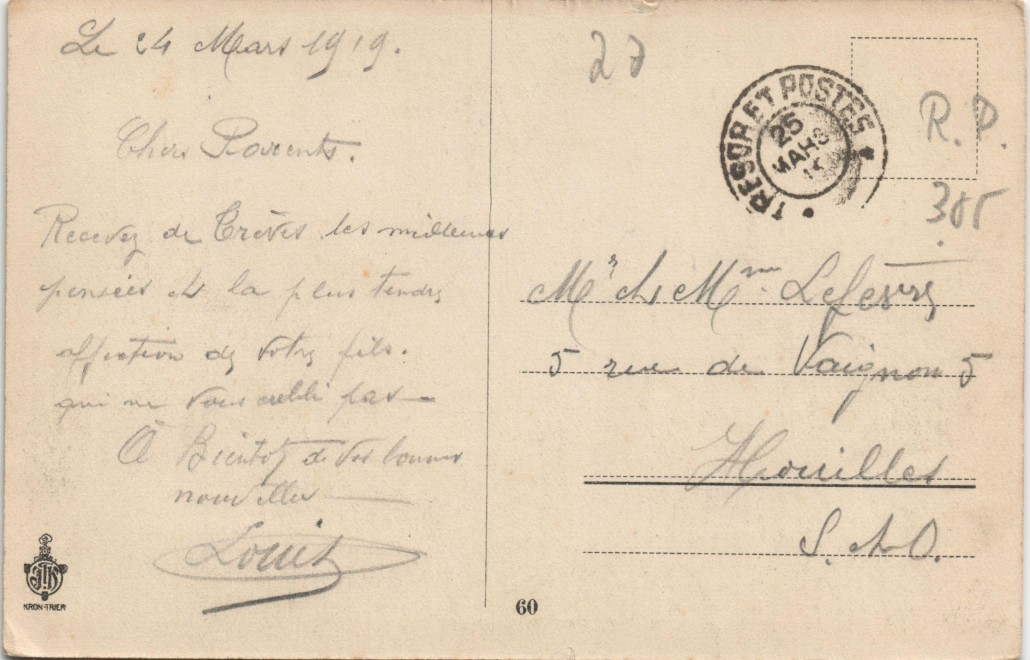 Le 24 Mars 1919.
Chers Parents.
Recevez de Trèves les meilleures
pensées et la plus tendre
affection de votre fils.
qui ne vous oublie pas
A Bientôt de vos bonnes
nouvelles
Louis
KRON-TRIER
60
TRESOR ET POSTES
25
MARS
R.P.
305
Mr et Mme Lefèvre
5 rue de Vaignon 5
Houilles
S. et O.